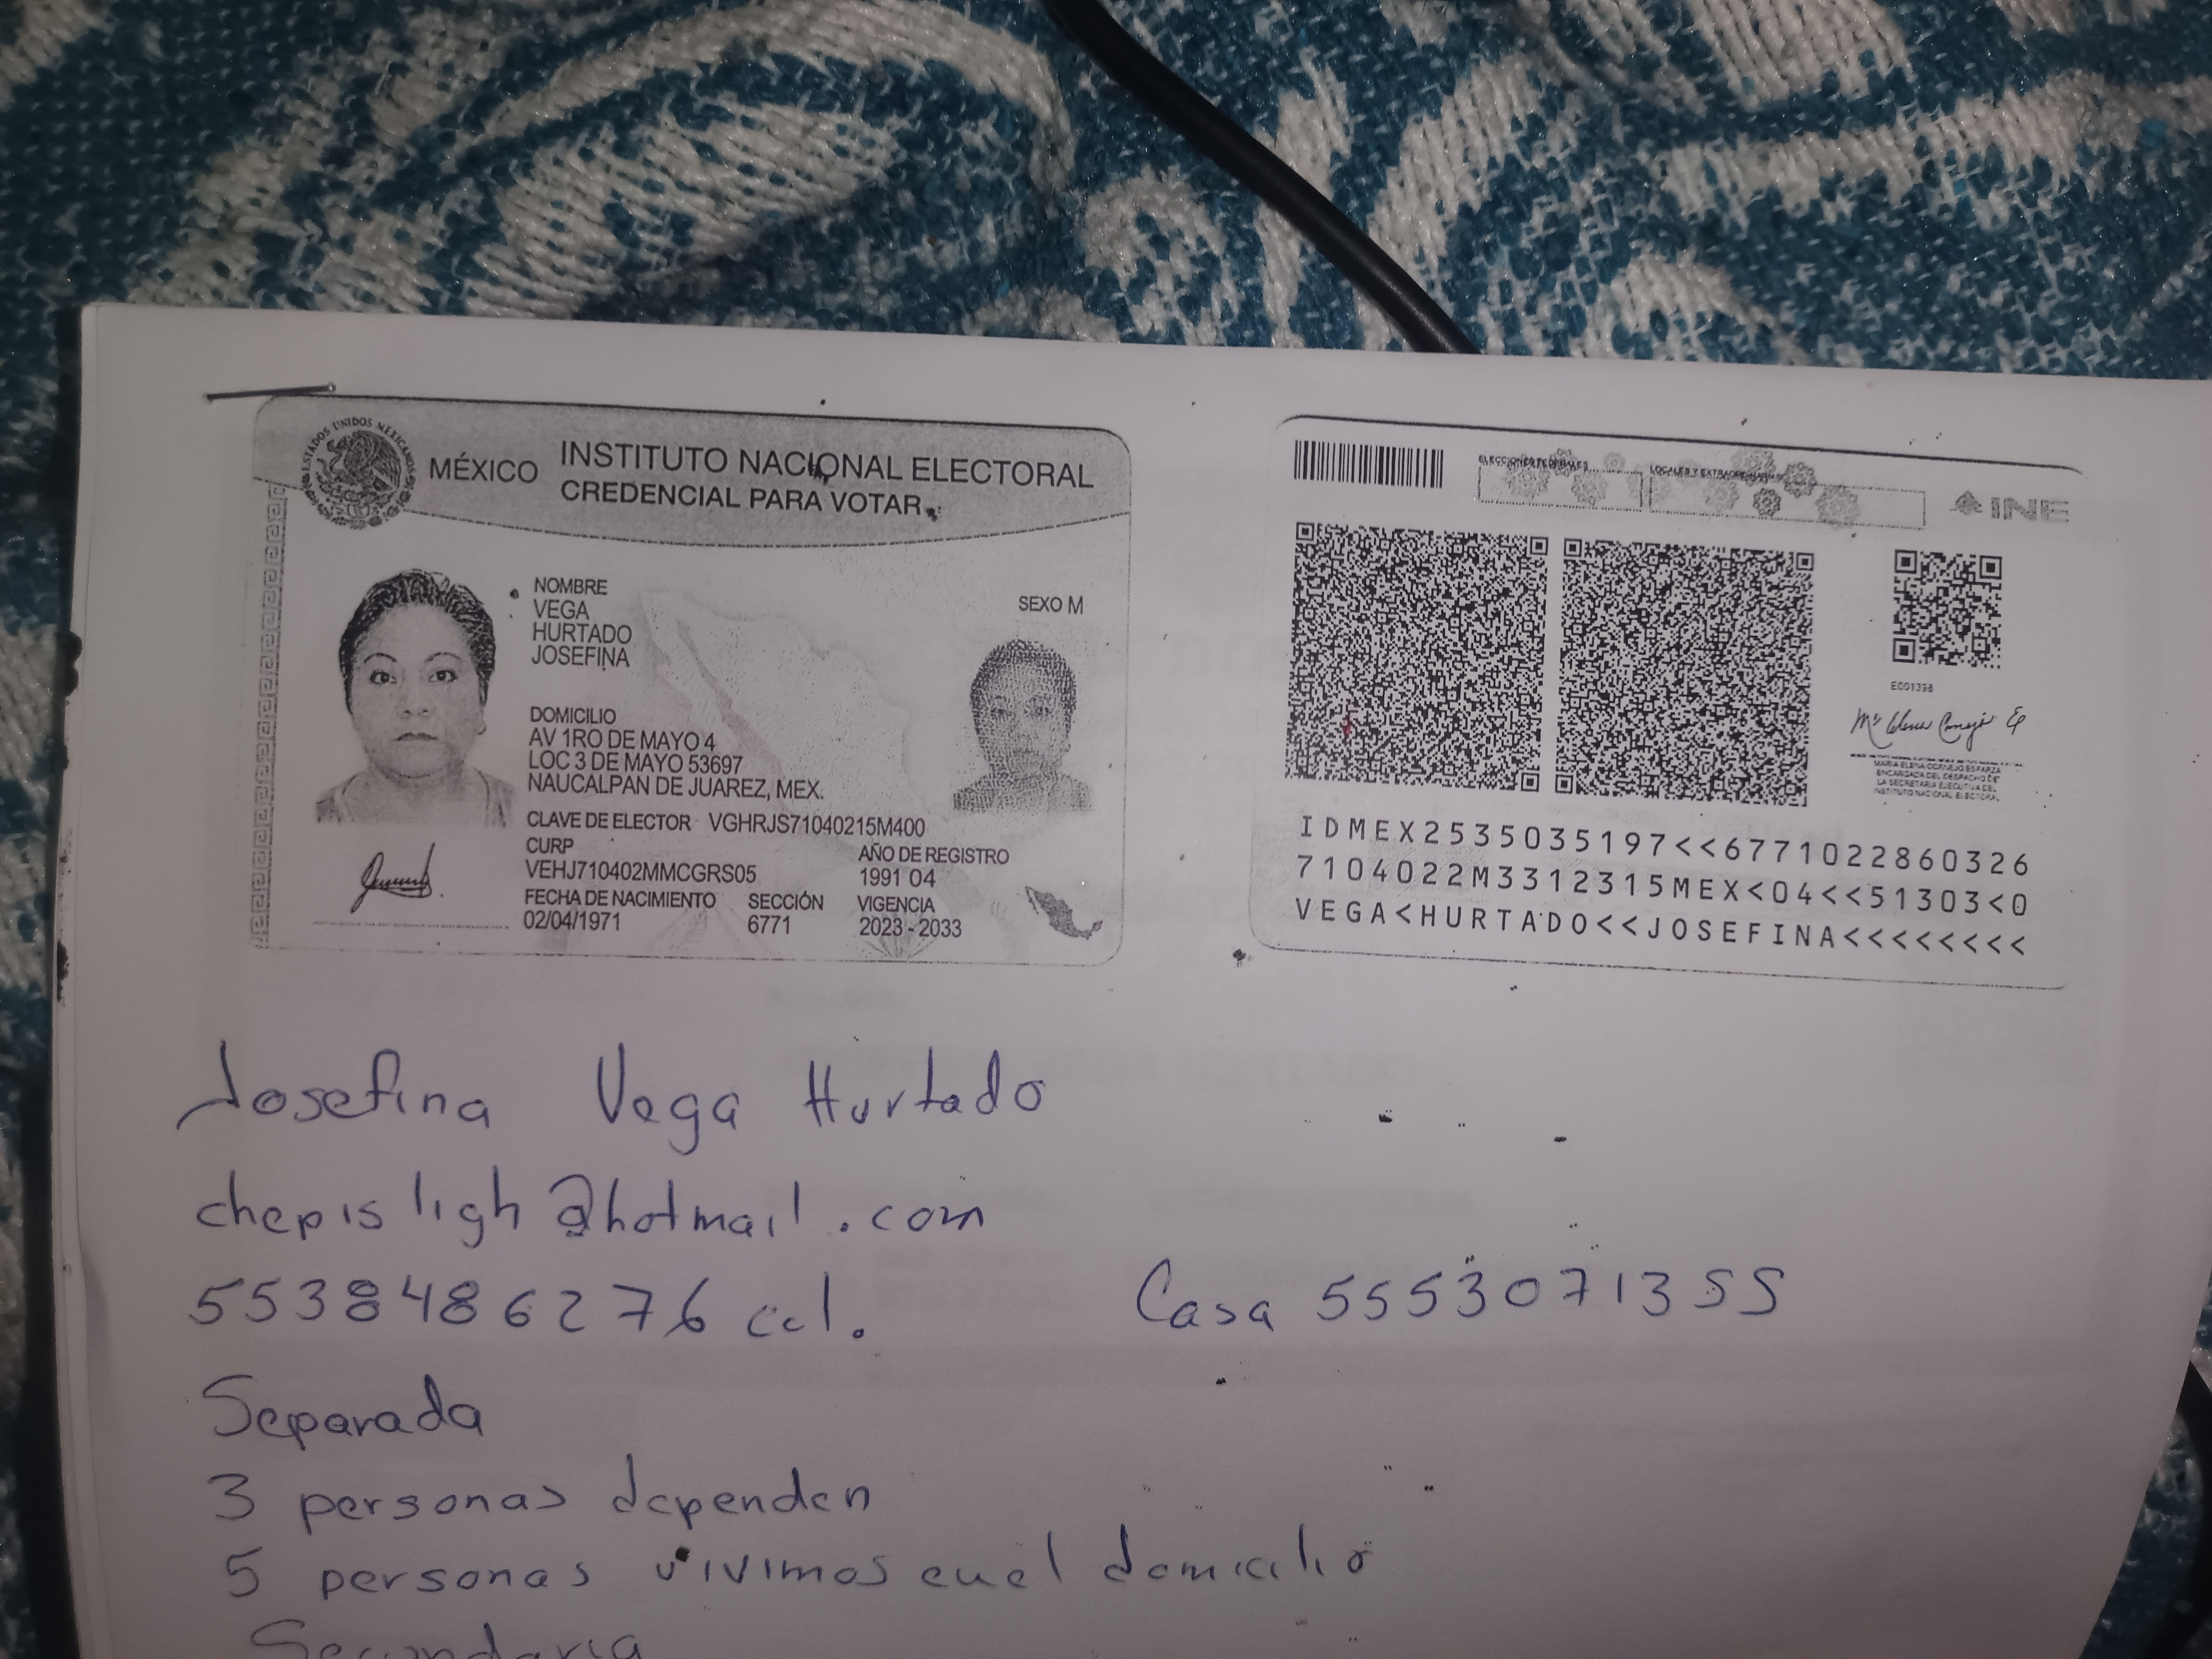 ESTADOS UNIDOS MEXICANOS
MÉXICO
INSTITUTO NACIONAL ELECTORAL
CREDENCIAL PARA VOTAR
NOMBRE
VEGA
HURTADO
JOSEFINA
SEXO M
DOMICILIO
AV 1RO DE MAYO 4
LOC 3 DE MAYO 53697
NAUCALPAN DE JUAREZ, MEX.
CLAVE DE ELECTOR VGHRJS71040215M400
CURP
VEHJ710402MMCGRS05
AÑO DE REGISTRO
1991 04
FECHA DE NACIMIENTO
02/04/1971
SECCIÓN
6771
VIGENCIA
2023 - 2033
ELECCIONES FEDERALES
LOCALES Y EXTRAORDINARIAS
INE
MARIA ELENA CORNEJO ESPARZA
ENCARGADA DEL DESPACHO DE
LA SECRETARIA EJECUTIVA DEL
INSTITUTO NACIONAL ELECTORAL
IDMEX2535035197<<6771022860326
7104022M3312315MEX<04<<51303<0
VEGA<HURTADO<<JOSEFINA<<<<<<<<
Josefina Vega Hurtado
chepisligh@hotmail.com
5538486276 cel. Casa 5553071355
Separada
3 personas dependen
5 personas vivimos en el domicilio
Secundaria